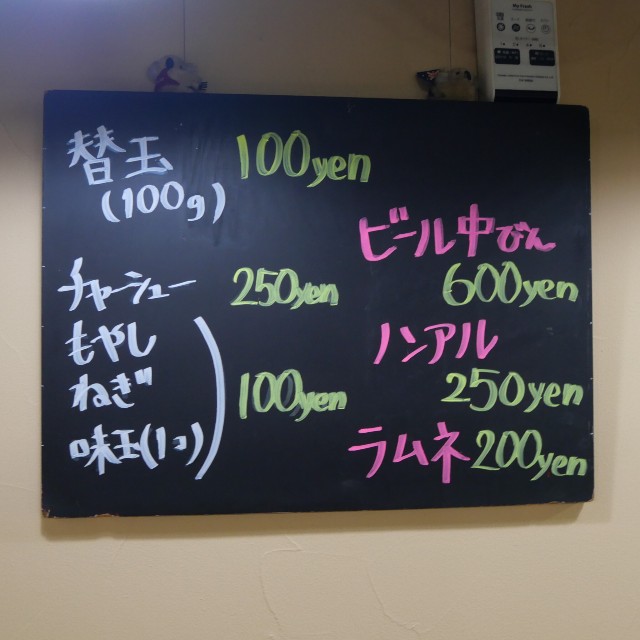 替玉 100yen
(100g)
チャーシュー 250yen
もやし
ねぎ 100yen
味玉(1コ)
ビール中びん
600yen
ノンアル
250yen
ラムネ 200yen